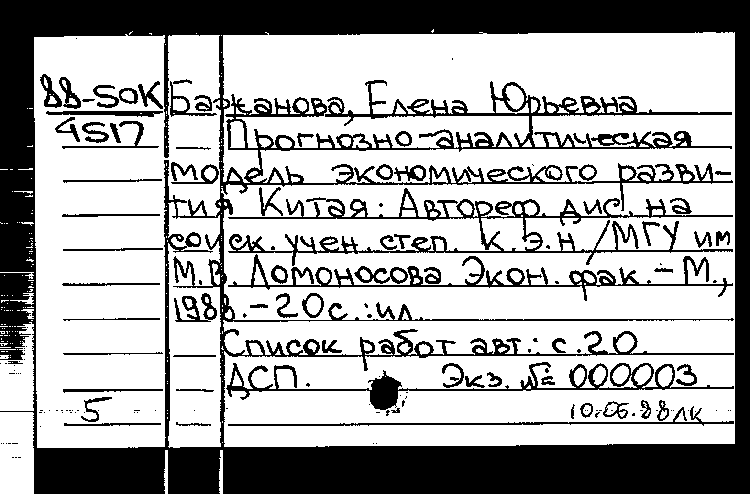 88-50K Бажанова, Елена Юрьевна.
4517 Прогнозно-аналитическая
модель экономического разви-
тия Китая: Автореф. дис. на
соиск. учен. степ. к.э.н. /МГУ им
М.В. Ломоносова. Экон. фак. - М.,
1988. - 20с.: ил.
Список работ авт.: с.20.
ДСП. Экз. № 000003.
5 10.06.88 лк